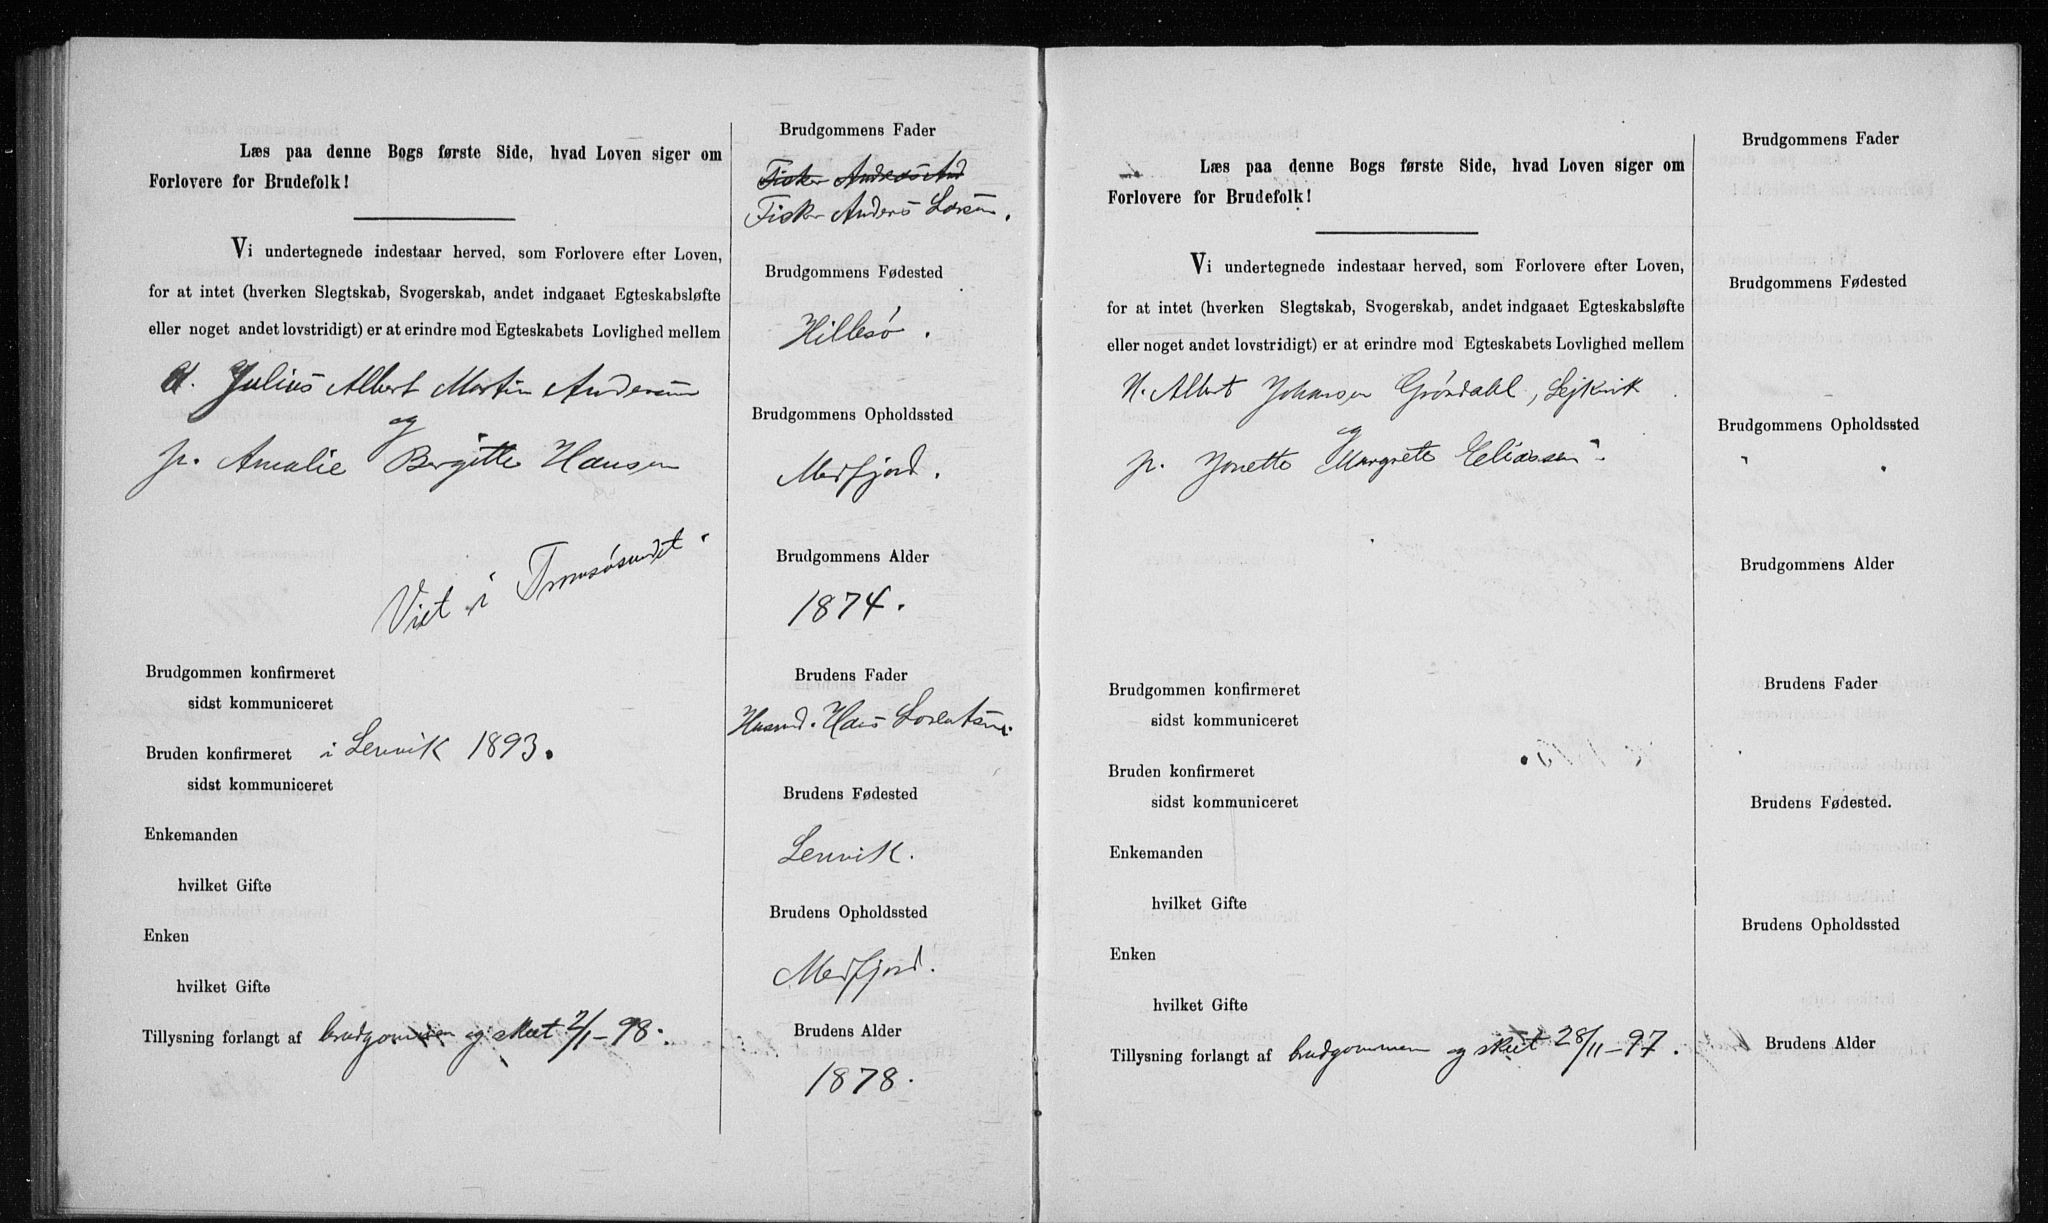 Læs paa denne Bogs første Side, hvad Loven siger om
Forlovere for Brudefolk!
Vi undertegnede indestaar herved, som Forlovere efter Loven,
for at intet (hverken Slegtskab, Svogerskab, andet indgaaet Egteskabsløfte
eller noget andet lovstridigt) er at erindre mod Egteskabets Lovlighed mellem
U. Julius Albert Martin Andersen
og
p. Amalie Bergitte Hansen
Viet i Tromsøsundet
Brudgommen konfirmeret
sidst kommuniceret
Bruden konfirmeret i Lenvik 1893.
sidst kommuniceret
Enkemanden
hvilket Gifte
Enken
hvilket Gifte
Tillysning forlangt af brudgommen og skeet 2/1-98.
Brudgommens Fader
Fisker Anders And
Fisker Anders Larsen.
Brudgommens Fødested
Hillesø.
Brudgommens Opholdssted
Medfjord.
Brudgommens Alder
1874.
Brudens Fader
Husmd. Hans Lorentsen.
Brudens Fødested
Lenvik.
Brudens Opholdssted
Medfjord.
Brudens Alder
1878.
Læs paa denne Bogs første Side, hvad Loven siger om
Forlovere for Brudefolk!
Vi undertegnede indestaar herved, som Forlovere efter Loven,
for at intet (hverken Slegtskab, Svogerskab, andet indgaaet Egteskabsløfte
eller noget andet lovstridigt) er at erindre mod Egteskabets Lovlighed mellem
U. Albert Johansen Grøndahl, Lejkvik
og
p. Jonette Margrete Eliassen "
Brudgommen konfirmeret
sidst kommuniceret
Bruden konfirmeret
sidst kommuniceret
Enkemanden
hvilket Gifte
Enken
hvilket Gifte
Tillysning forlangt af brudgommen og skeet 28/11-97.
Brudgommens Fader
Brudgommens Fødested
Brudgommens Opholdssted
Brudgommens Alder
Brudens Fader
Brudens Fødested.
Brudens Opholdssted
Brudens Alder